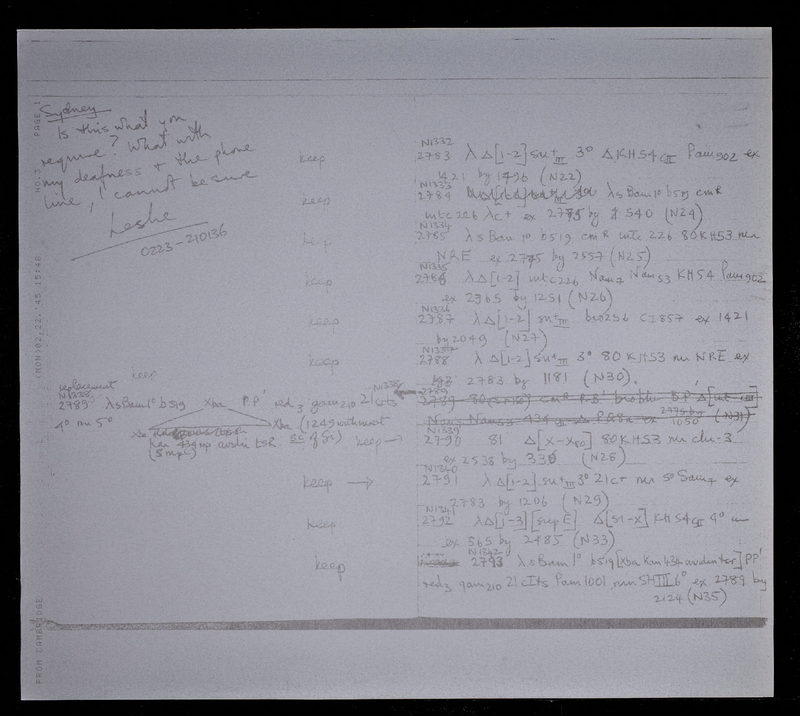 NO.3 PAGE 1
(MON)02.22.'45 15:48
FROM CAMBRIDGE
Sydney
Is this what you
require? What with
my deafness + the phone
line, I cannot be sure
Leslie
0223-210136
keep
N1332
2783 λ Δ[1-2] su+III 3° ΔKH54 Pam902 ex
1421 by 1496 (N22)
keep
N1333
2784 λsBam1° b519 cmR
intc226 λc+ ex 2775 by 540 (N24)
keep
N1334
2785 λsBam 1° b519 cmR intc 226 80KH53 nin
NRE ex 2775 by 2557 (N25)
keep
N1335
2786 λΔ[1-2] intc226 Nam7 Nam53 KH54 Pam902
ex 2965 by 1251 (N26)
keep
N1336
2787 λΔ[1-2] su+III bio256 cI857 ex 1421
by 2049 (N27)
keep
N1337
2788 λ Δ[1-2] su+III 3° 80KH53 nin NRE ex
2783 by 1181 (N30).
keep
replacement
N1338
2789 λsBam1° b519 Xba PP' red3 gam210 21cIts
4° nin 5° Xba Xba (1249 without
(kan 434 rep avidin tsR
keep →
N1339
2790 81 Δ[X-X80] 80KH53 nin chi-3
ex 2538 by 336 (N28)
keep →
N1340
2791 λΔ[1-2] su+III 3° 21c+ nin 5° Sam7 ex
2783 by 1206 (N29)
keep
N1341
2792 λΔ[1-3] [supE] Δ[51-X] KH54 4°
ex 565 by 2485 (N33)
keep
N1342
2793 λsBam1° b519 [Xba Kan 434 avidin tsr] PP'
red3 gam210 21cIts Pam1001 nin SHIII6° ex 2789 by
2124 (N35)